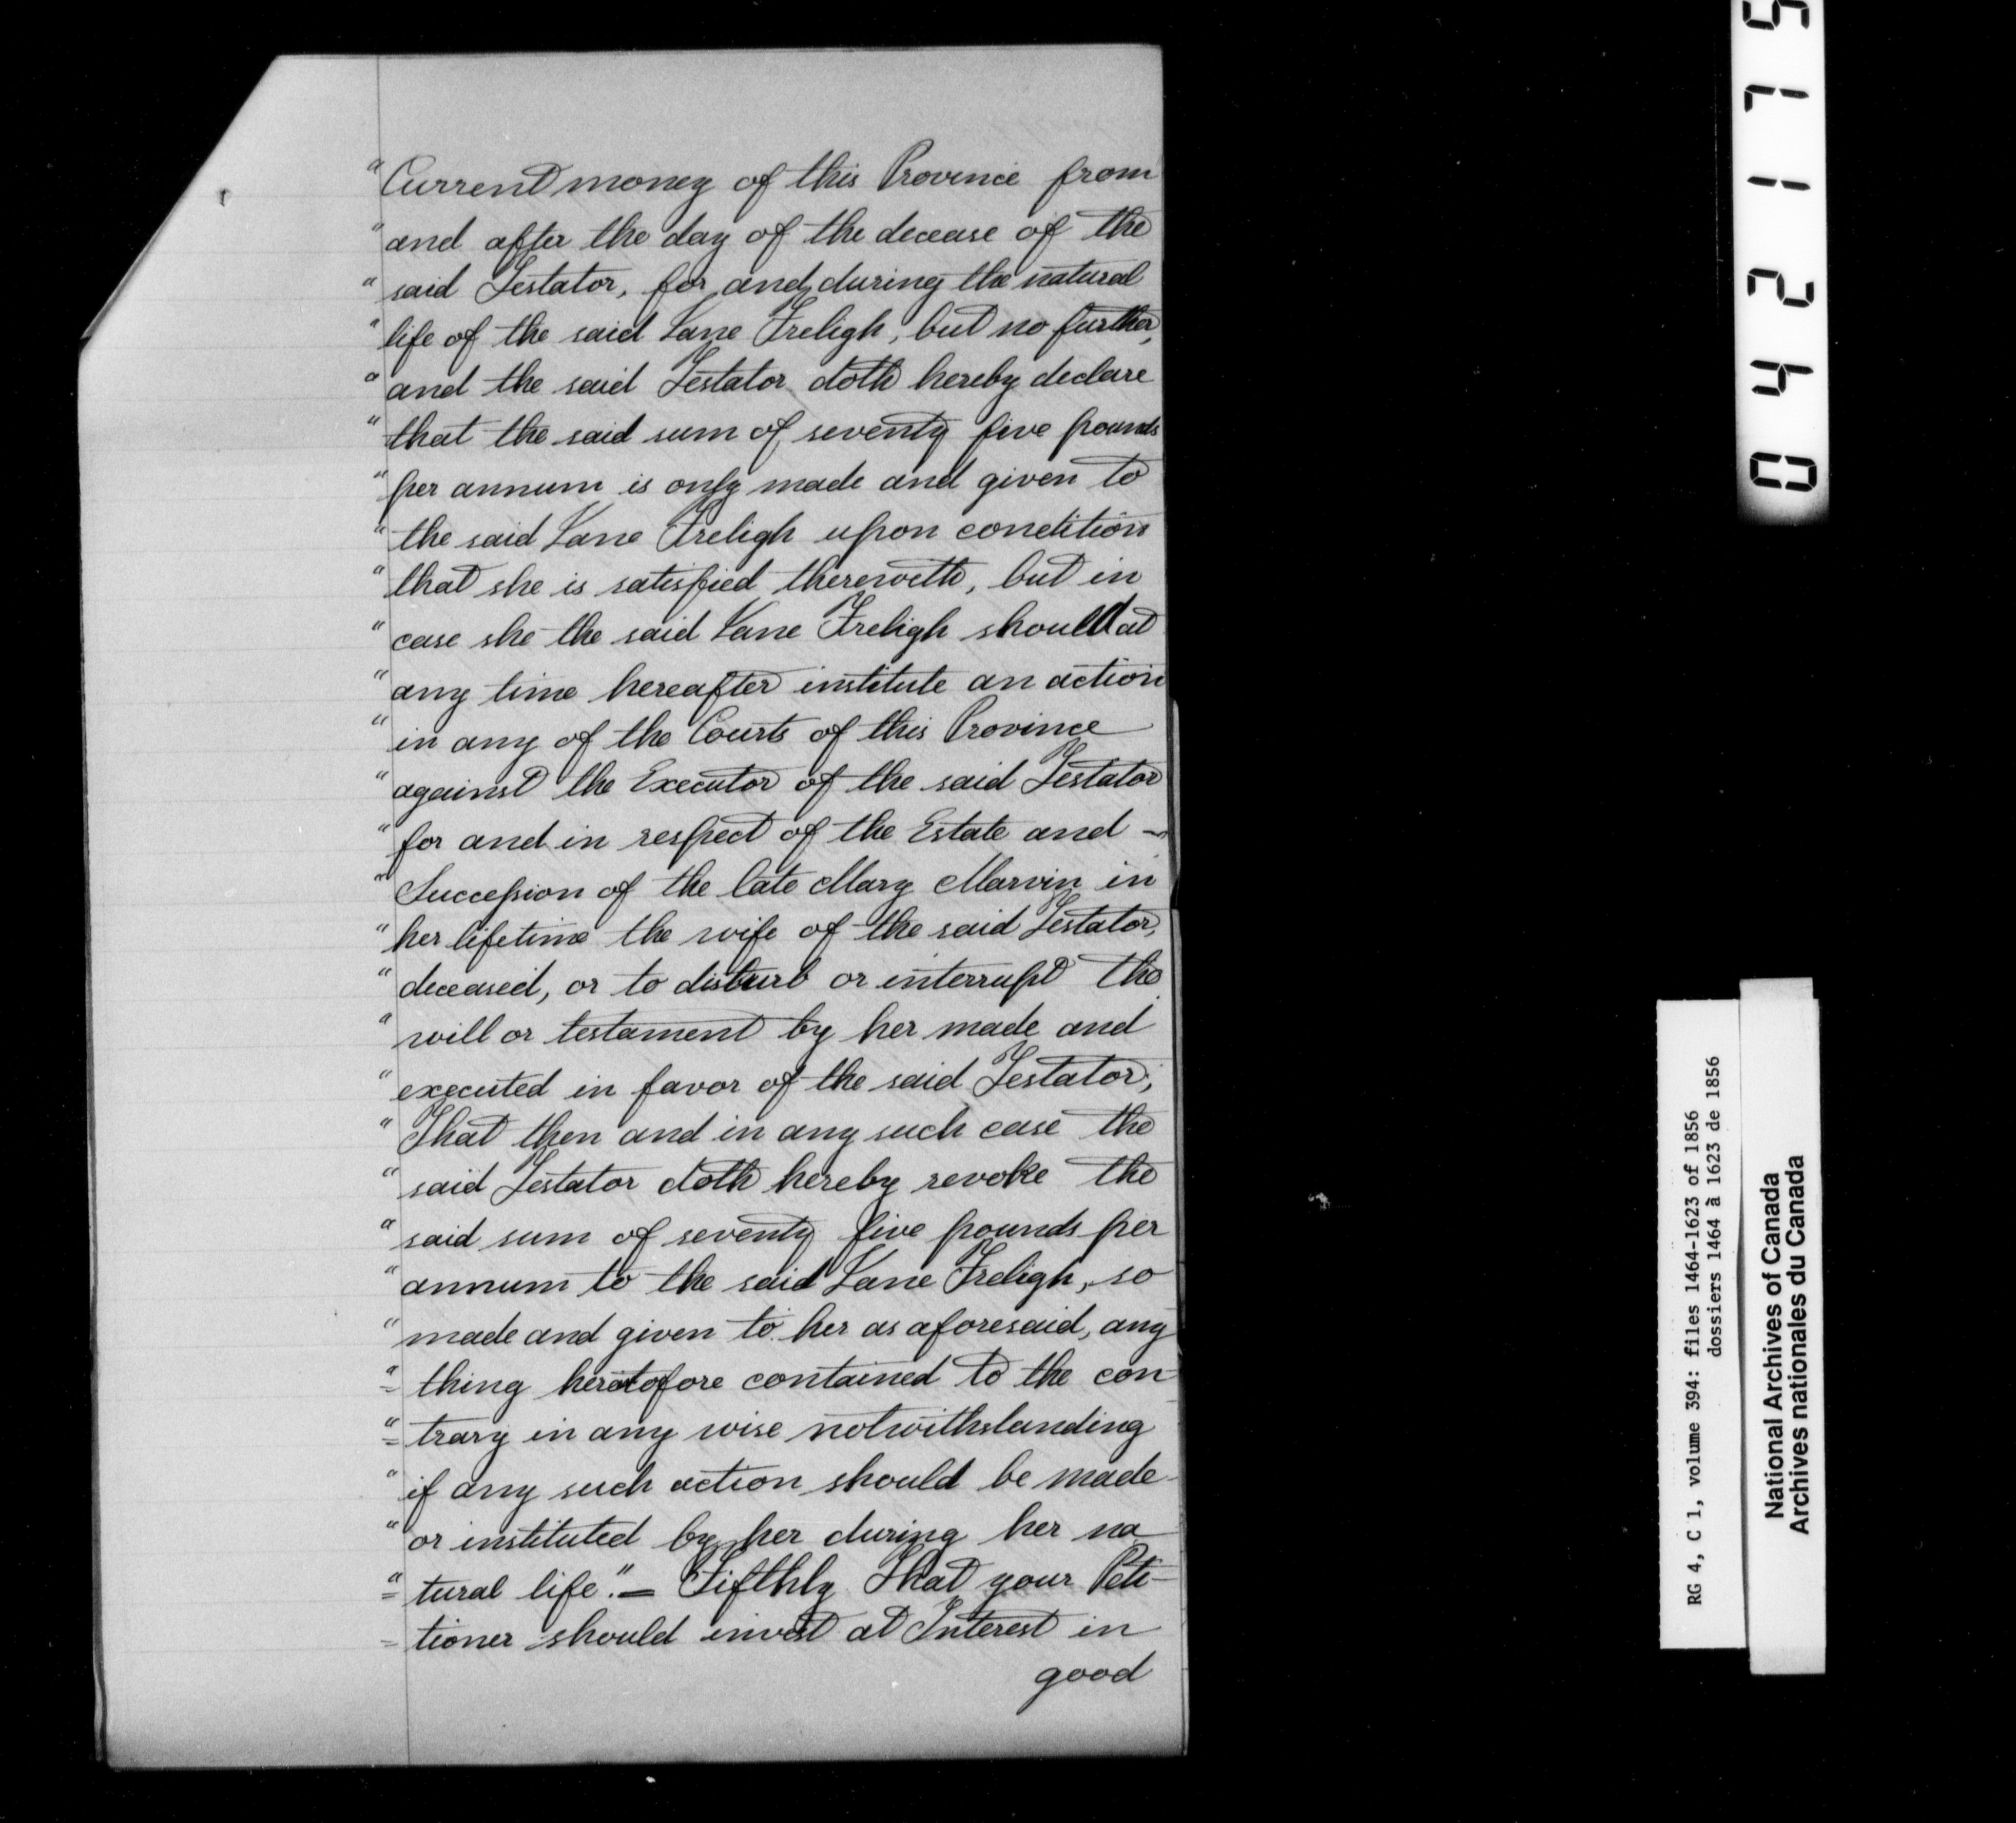 "Current money of this Province from
"and after the day of the decease of the
"said Testator, for and during the natural
"life of the said Lane Freligh, but no further,
"and the said Testator doth hereby declare
"that the said sum of seventy five pounds
"per annum is only made and given to
"the said Lane Freligh upon condition
"that she is satisfied therewith, but in
"case she the said Lane Freligh should at
"any time hereafter institute an action
"in any of the Courts of this Province
"against the Executor of the said Testator
"for and in respect of the Estate and -
"Succession of the late Mary Marvin in
"her lifetime the wife of the said Testator,
"deceased, or to disturb or interrupt the
"will or testament by her made and
"executed in favor of the said Testator;
"That then and in any such case the
"said Testator doth hereby revoke the
"said sum of seventy five pounds per
"annum to the said Lane Freligh, so
"made and given to her as aforesaid, any
"= thing heretofore contained to the con
"= trary in any wise notwithstanding
"if any such action should be made
"or instituted by her during her na
"= tural life." = Fifthly That your Peti-
= tioner should invest at Interest in
good
042175
RG 4, C 1, volume 394: files 1464-1623 of 1856
dossiers 1464 à 1623 de 1856
National Archives of Canada
Archives nationales du Canada